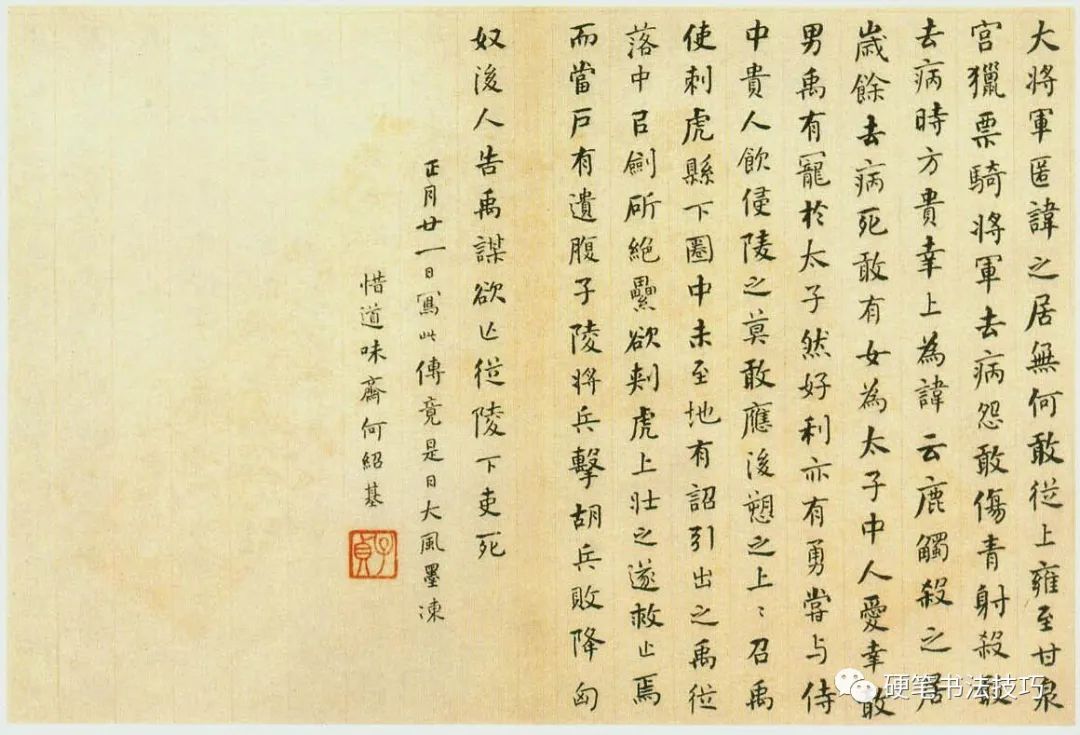 大將軍匿諱之居無何敢從上雍至甘泉
宮獵票騎將軍去病怨敢傷青射殺敢
去病時方貴幸上為諱云鹿觸殺之居
歲餘去病死敢有女為太子中人愛幸敢
男禹有寵於太子然好利亦有勇嘗与侍
中貴人飲侵陵之莫敢應後愬之上〻召禹
使刺虎縣下圈中未至地有詔引出之禹從
落中㠯劍斫絕纍欲刺虎上壯之遂救止焉
而當戶有遺腹子陵將兵擊胡兵敗降匈
奴後人告禹謀欲亡從陵下吏死
正月廿一日寫此傳竟是日大風墨凍
惜道味齋何紹基
子貞
硬笔书法技巧